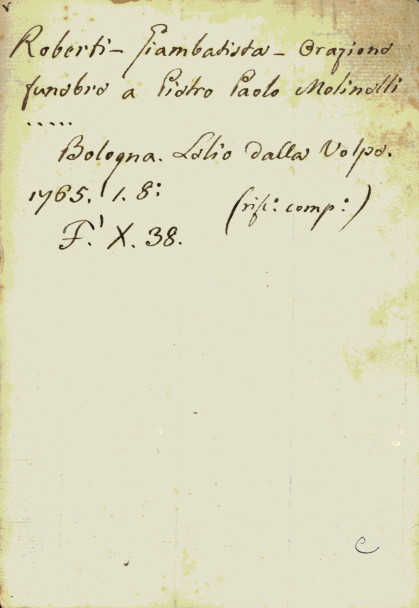 Roberti - Giambatista - Orazione
funebre a Pietro Paolo Molinelli
.....
Bologna. Lelio dalla Volpe.
1765. 1. 8:
(rift: comp:)
F. X. 38.
C